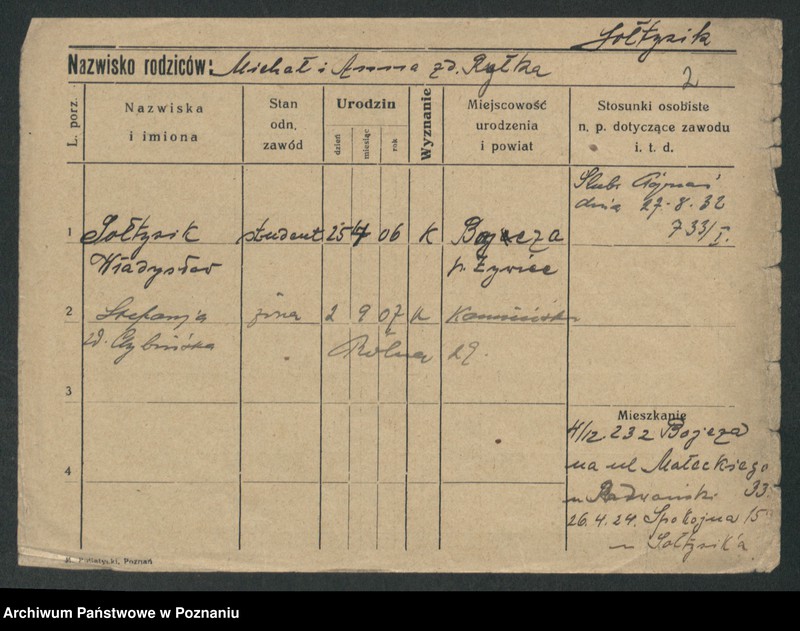 Sołtysik
Nazwisko rodziców: Michał i Anna zd. Ryłka
2
L. porz.
Nazwiska
i imiona
Stan
odn.
zawód
Urodzin
dzień
miesiąc
rok
Wyznanie
Miejscowość
urodzenia
i powiat
Stosunki osobiste
n. p. dotyczące zawodu
i. t. d.
Ślub
dnia 27.8.32
733/I.
1 Sołtysik student 25 4 06 K
Władysław p. Żywiec
2 Stefanja żona 2 9 07 K
zd. Rolna 29.
3
4
Mieszkanie
4/12 232
na ul Małeckiego
33
26.4.24. Spokojna 15
Sołtysik'a
Poznań
Archiwum Państwowe w Poznaniu